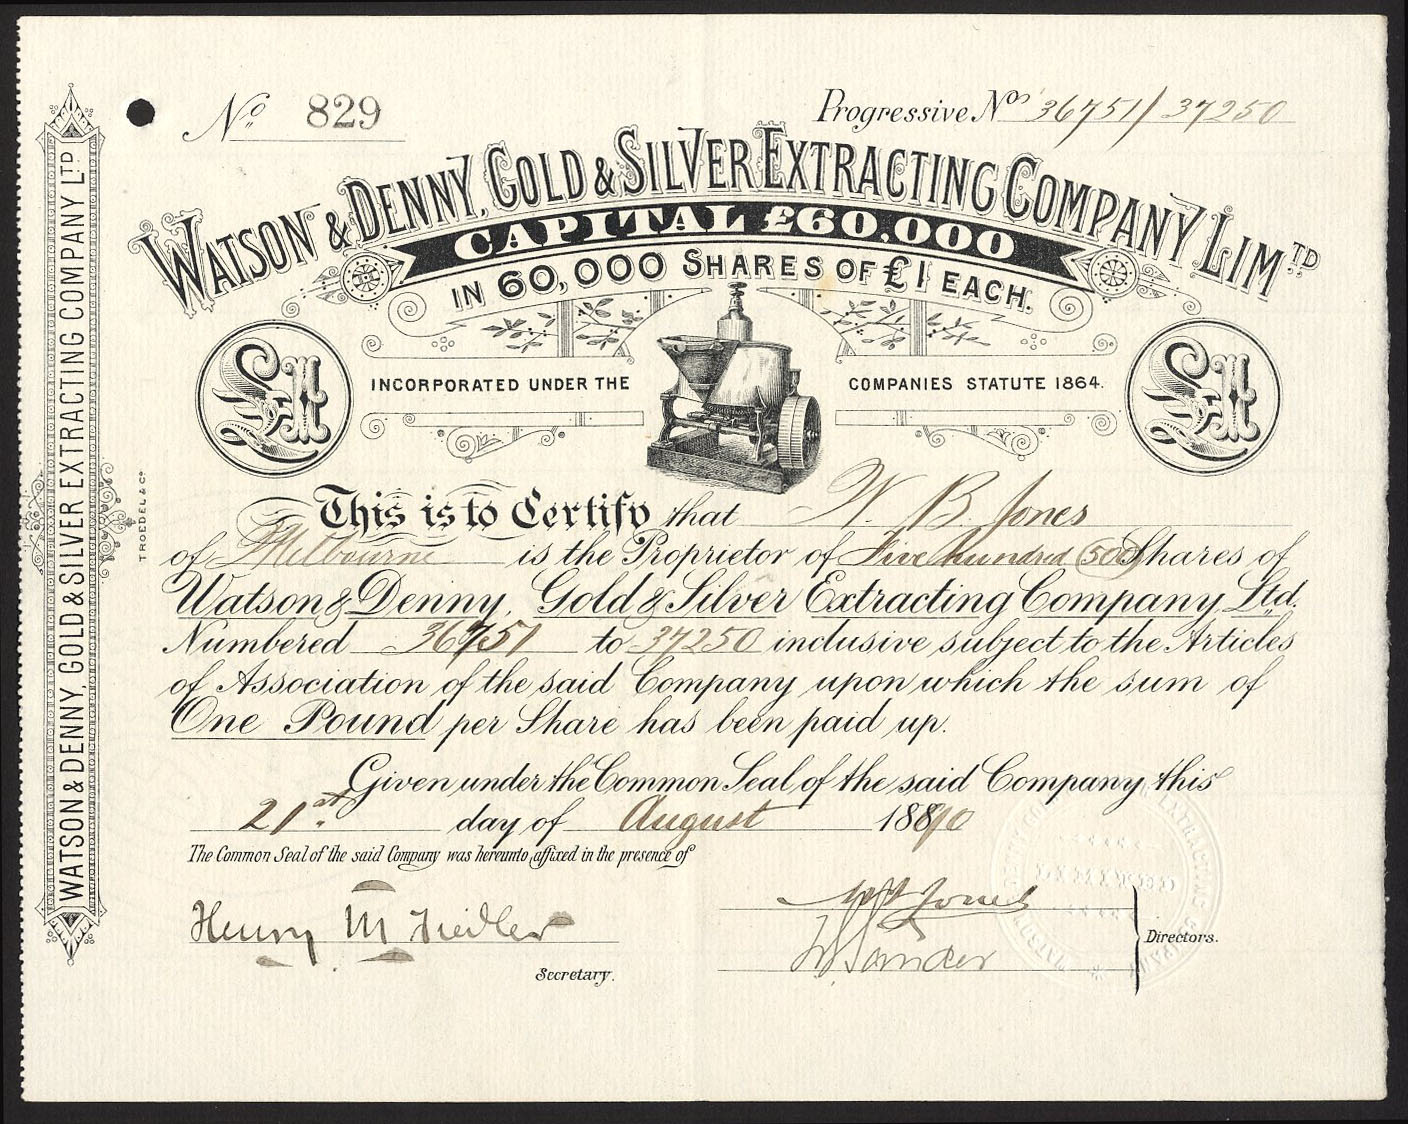 No 829
Progressive Nos 36751/37250
WATSON & DENNY, GOLD & SILVER EXTRACTING COMPANY LIMTD
CAPITAL £60,000
IN 60,000 SHARES OF £1 EACH.
INCORPORATED UNDER THE COMPANIES STATUTE 1864.
This is to Certify that W. B. Jones
of Melbourne is the Proprietor of Five hundred (500) Shares of
Watson & Denny, Gold & Silver Extracting Company, Ltd.
Numbered 36751 to 37250 inclusive subject to the Articles
of Association of the said Company upon which the sum of
One Pound per Share has been paid up.
Given under the Common Seal of the said Company this
21st day of August 1890
The Common Seal of the said Company was hereunto affixed in the presence of
Henry M Fiedler
Secretary.
Jones
Directors.
WATSON & DENNY, GOLD & SILVER EXTRACTING COMPANY LTD
TROEDEL & Co
LIMITED